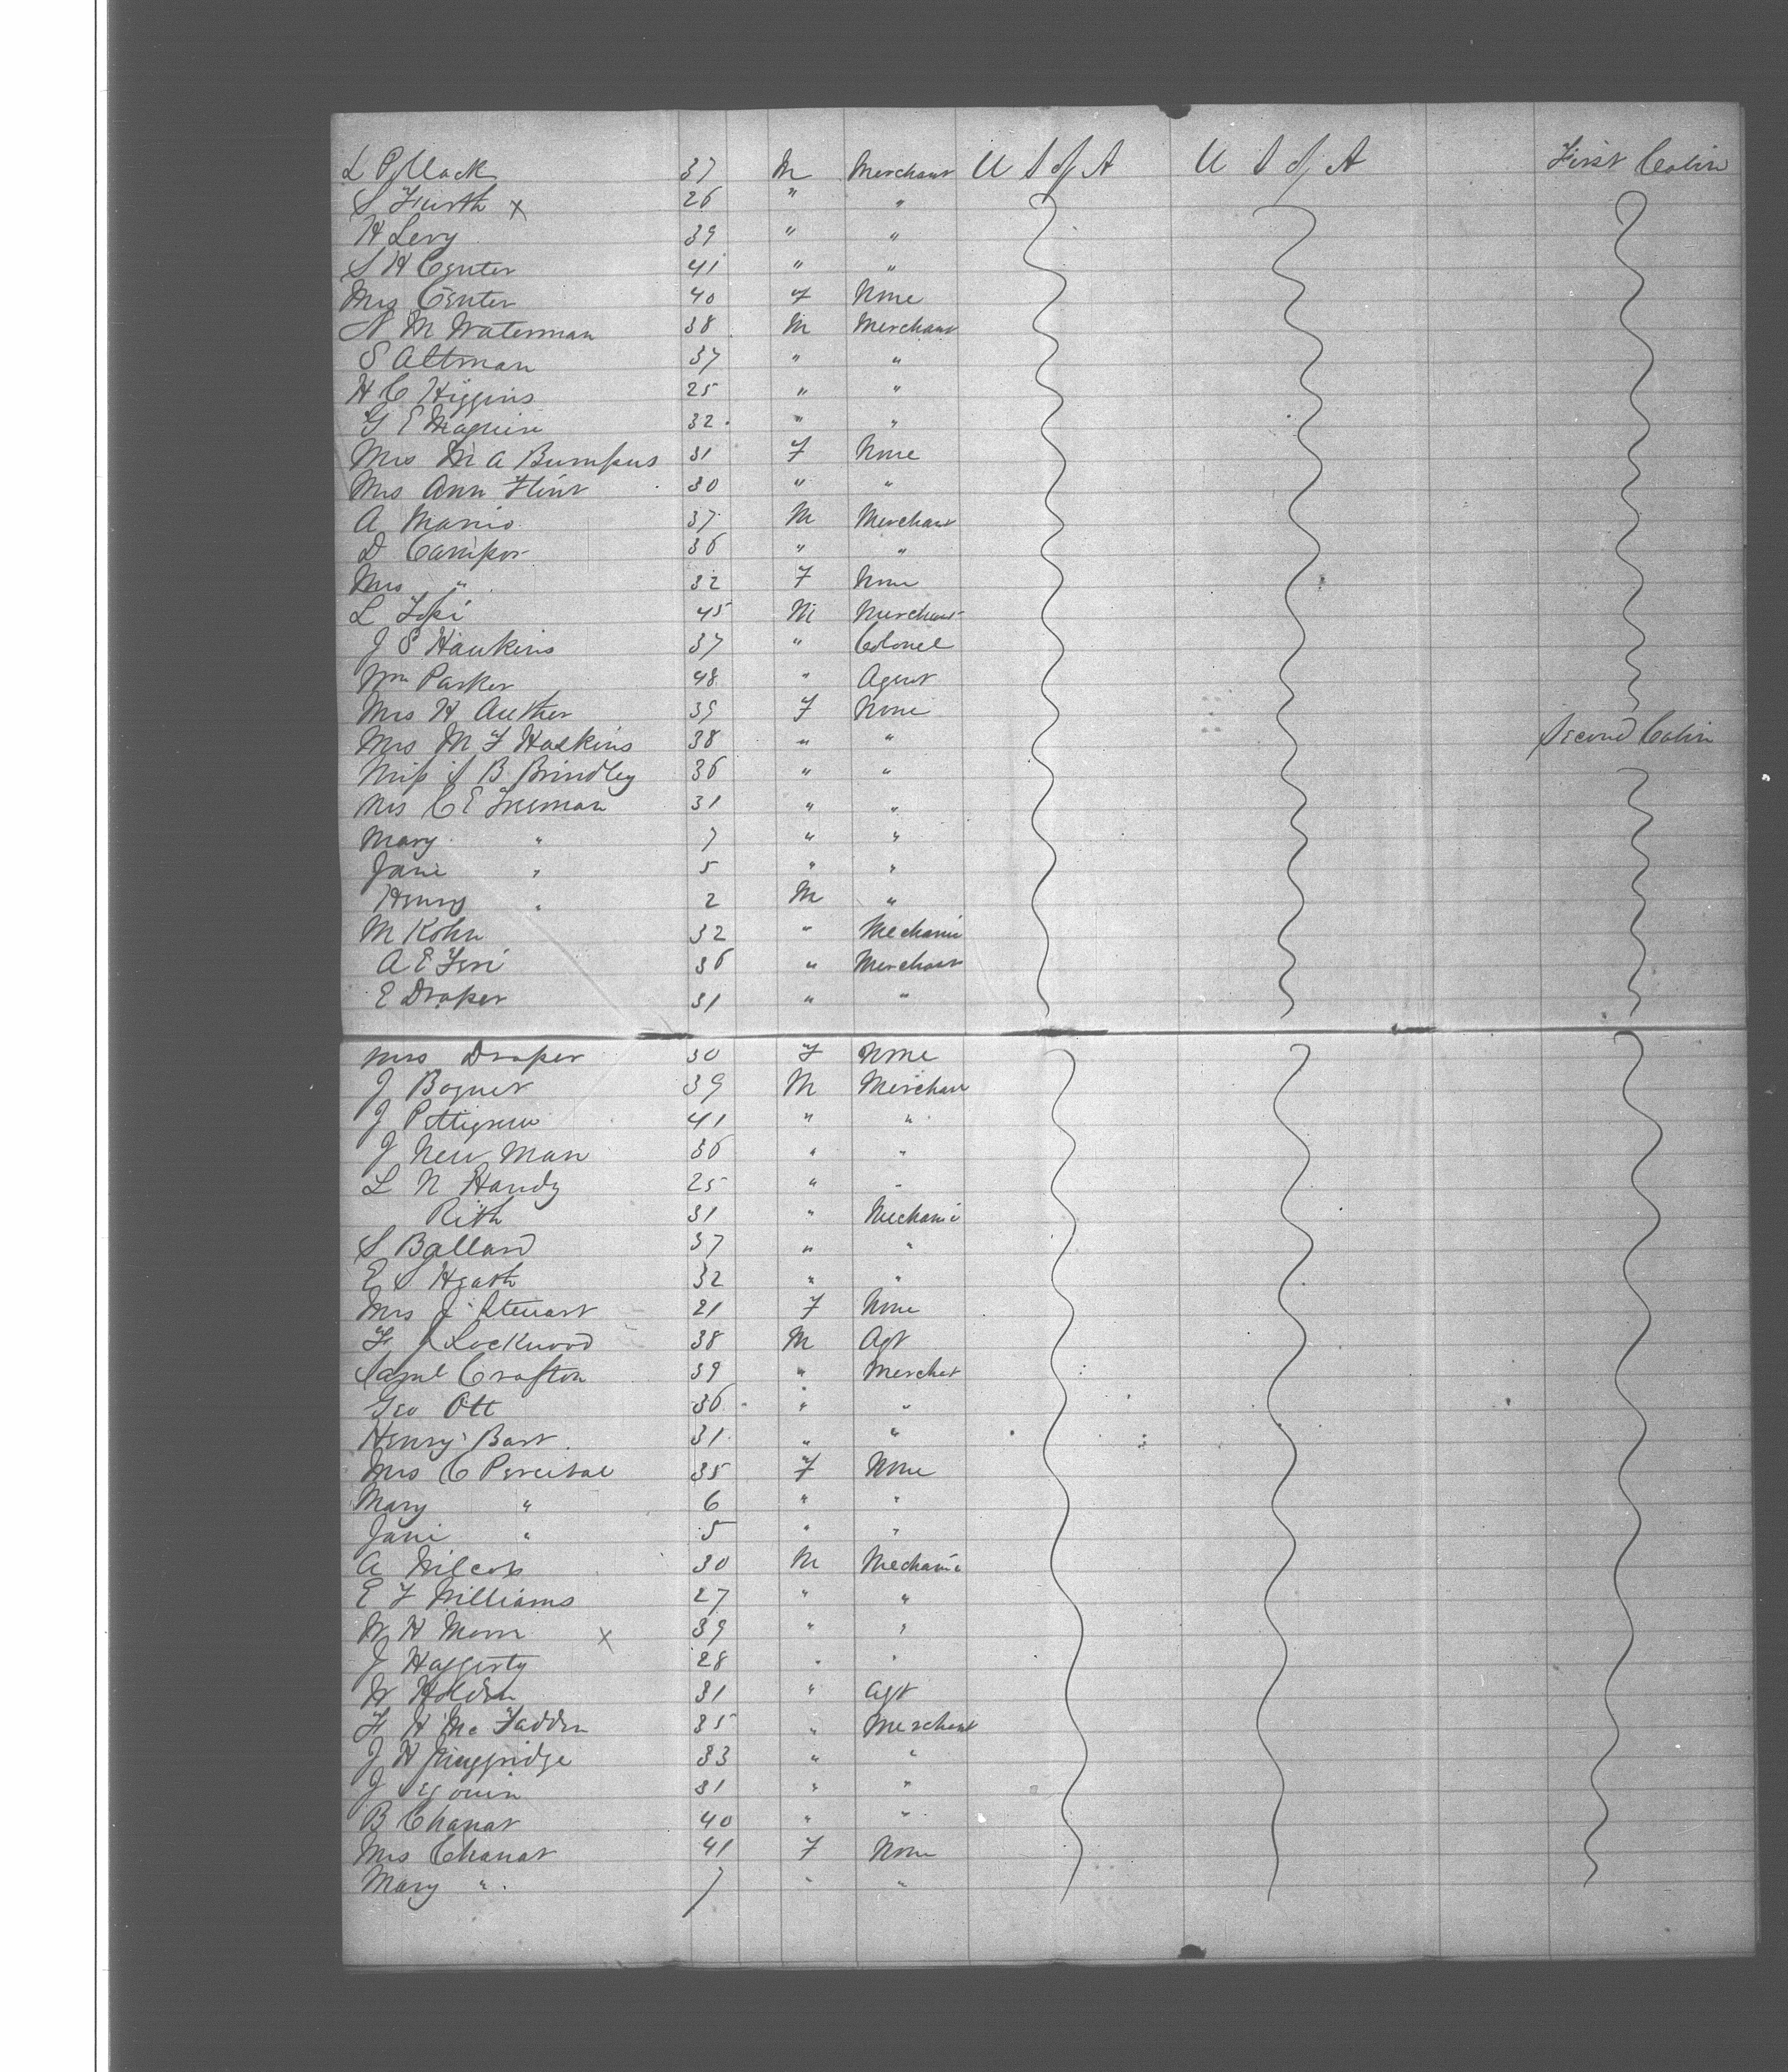 L Pollack 37 M Merchant U S of A U S of A First Cabin
S Furth x 26 " "
H Levy 39 " "
S H Center 41 " "
Mrs Center 40 F None
N M Waterman 38 M Merchant
S Altman 37 " "
H C Higgins 25 " "
G E Maguire 32 " "
Mrs M A Bumpus 31 F None
Mrs Ann Flint 30 " "
A 37 M Merchant
D 36 " "
Mrs " 32 F None
L 45 M Merchant
J S Hawkins 37 " Colonel
Wm Parker 48 " Agent
Mrs H Auther 39 F None
Mrs M F Haskins 38 " " Second Cabin
Miss S B Brindley 36 " "
Mrs C E Freeman 31 " "
Mary " 7 " "
Jane " 5 " "
Henry " 2 M "
M Kohn 32 " Mechanic
A E 36 " Merchant
E Draper 31 " "
Mrs Draper 30 F None
J 39 M Merchant
J Pettigrew 41 " "
J New man 36 " "
L N Handy 25 " "
Rith 31 " Mechanic
S Ballard 37 " "
E S Heath 32 " "
Mrs J Stewart 21 F None
F J Lockwood 38 M Agt
Saml Crafton 39 " Merchat
Geo Ott 36 " "
Henry Bart 31 " "
Mrs C Percival 35 F None
Mary " 6 " "
Jane " 5 " "
A Wilcox 30 M Mechanic
E F Williams 27 " "
W H x 39 " "
J Haggerty 28 " "
W Holden 31 " Agt
F H Mc Fadden 35 " Merchant
J H Muggridge 33 " "
J Segouin 31 " "
B Chanat 40 " "
Mrs Chanat 41 F None
Mary " 7 " "